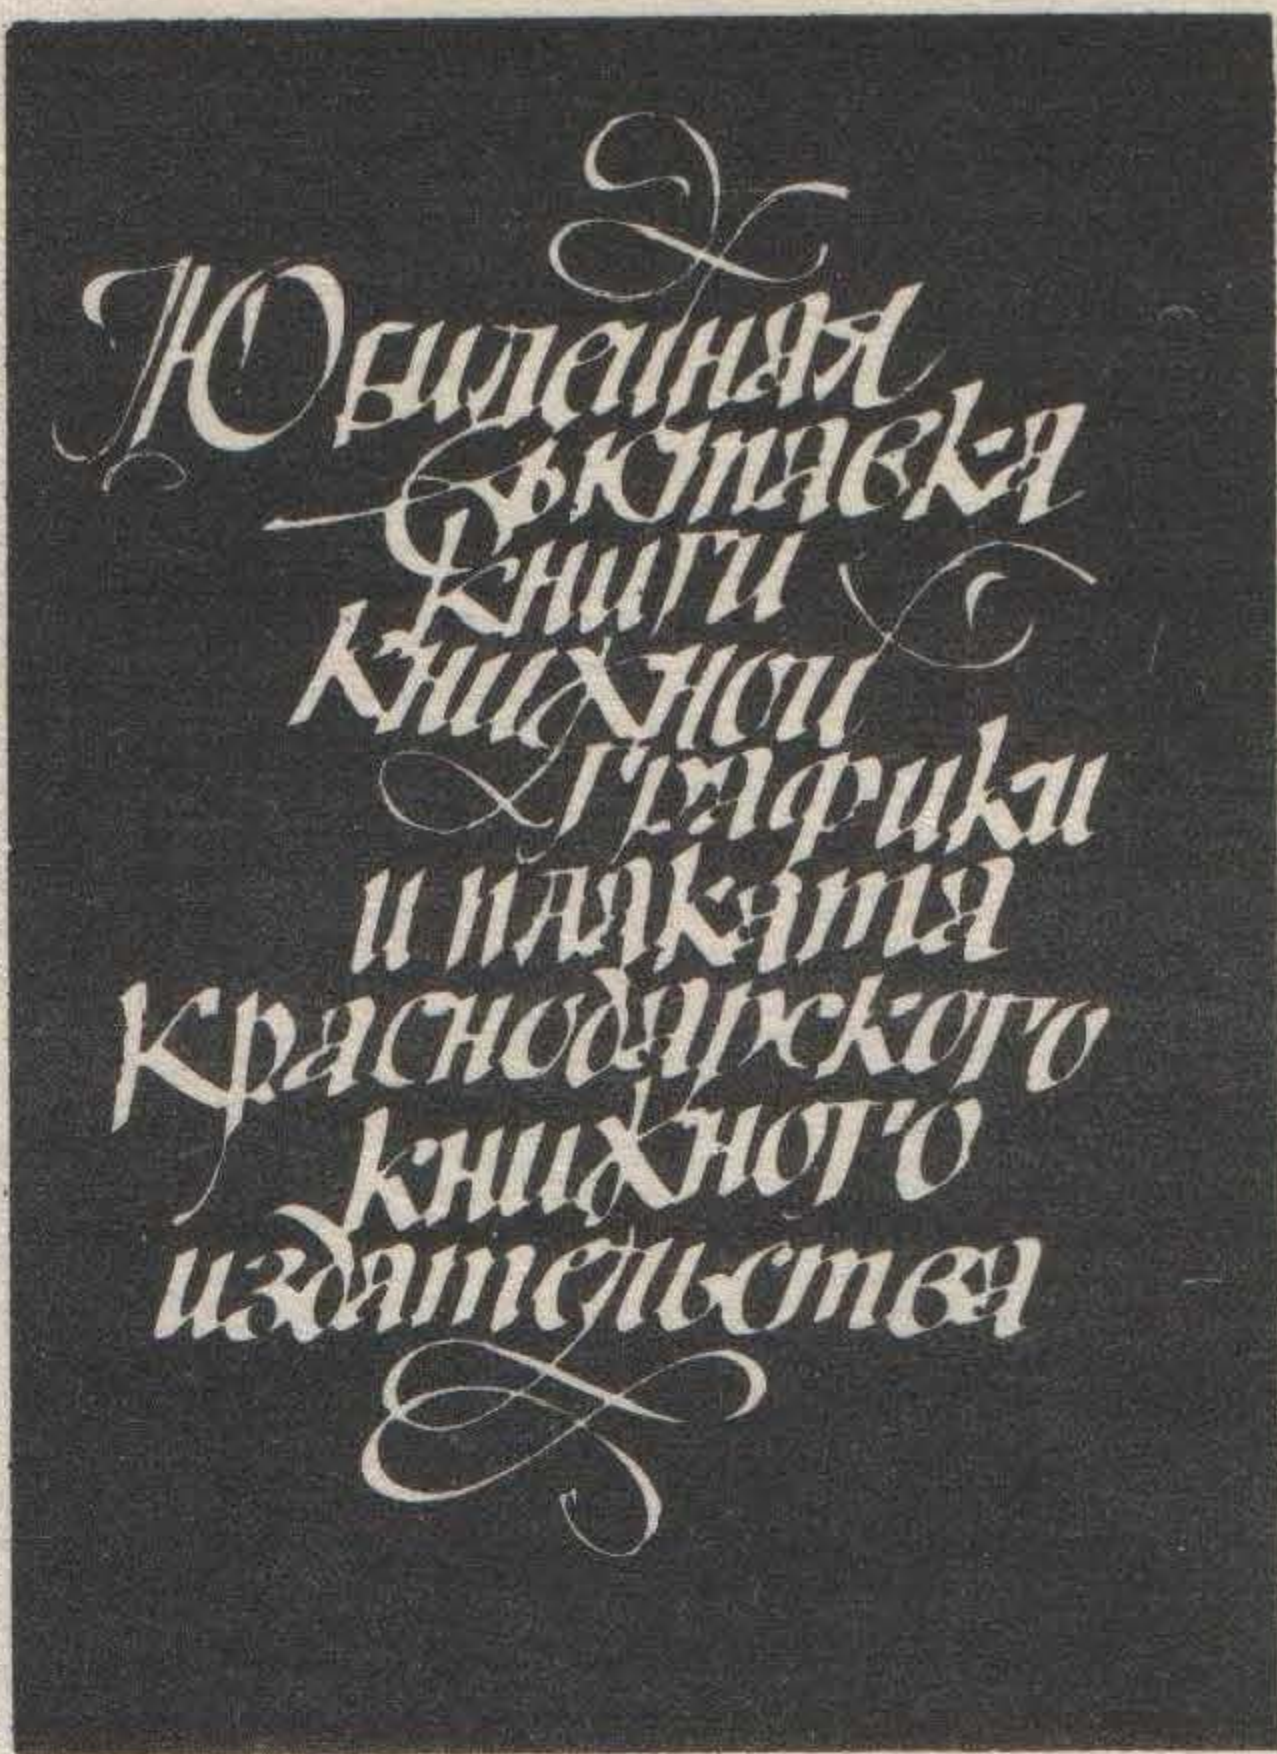 Юбилейная
выставка
книги
книжной
графики
и плаката
Краснодарского
книжного
издательства